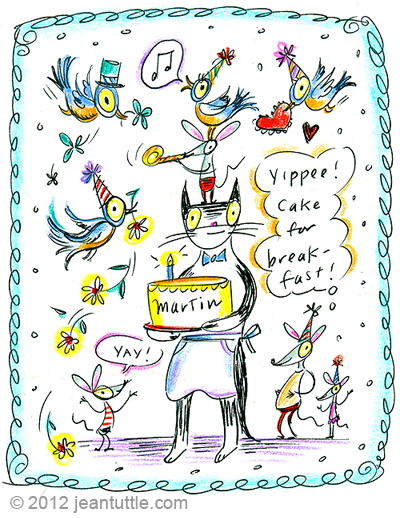 Yippee!
Cake
for
break-
fast!
martin
YAY!
© 2012 jeantuttle.com